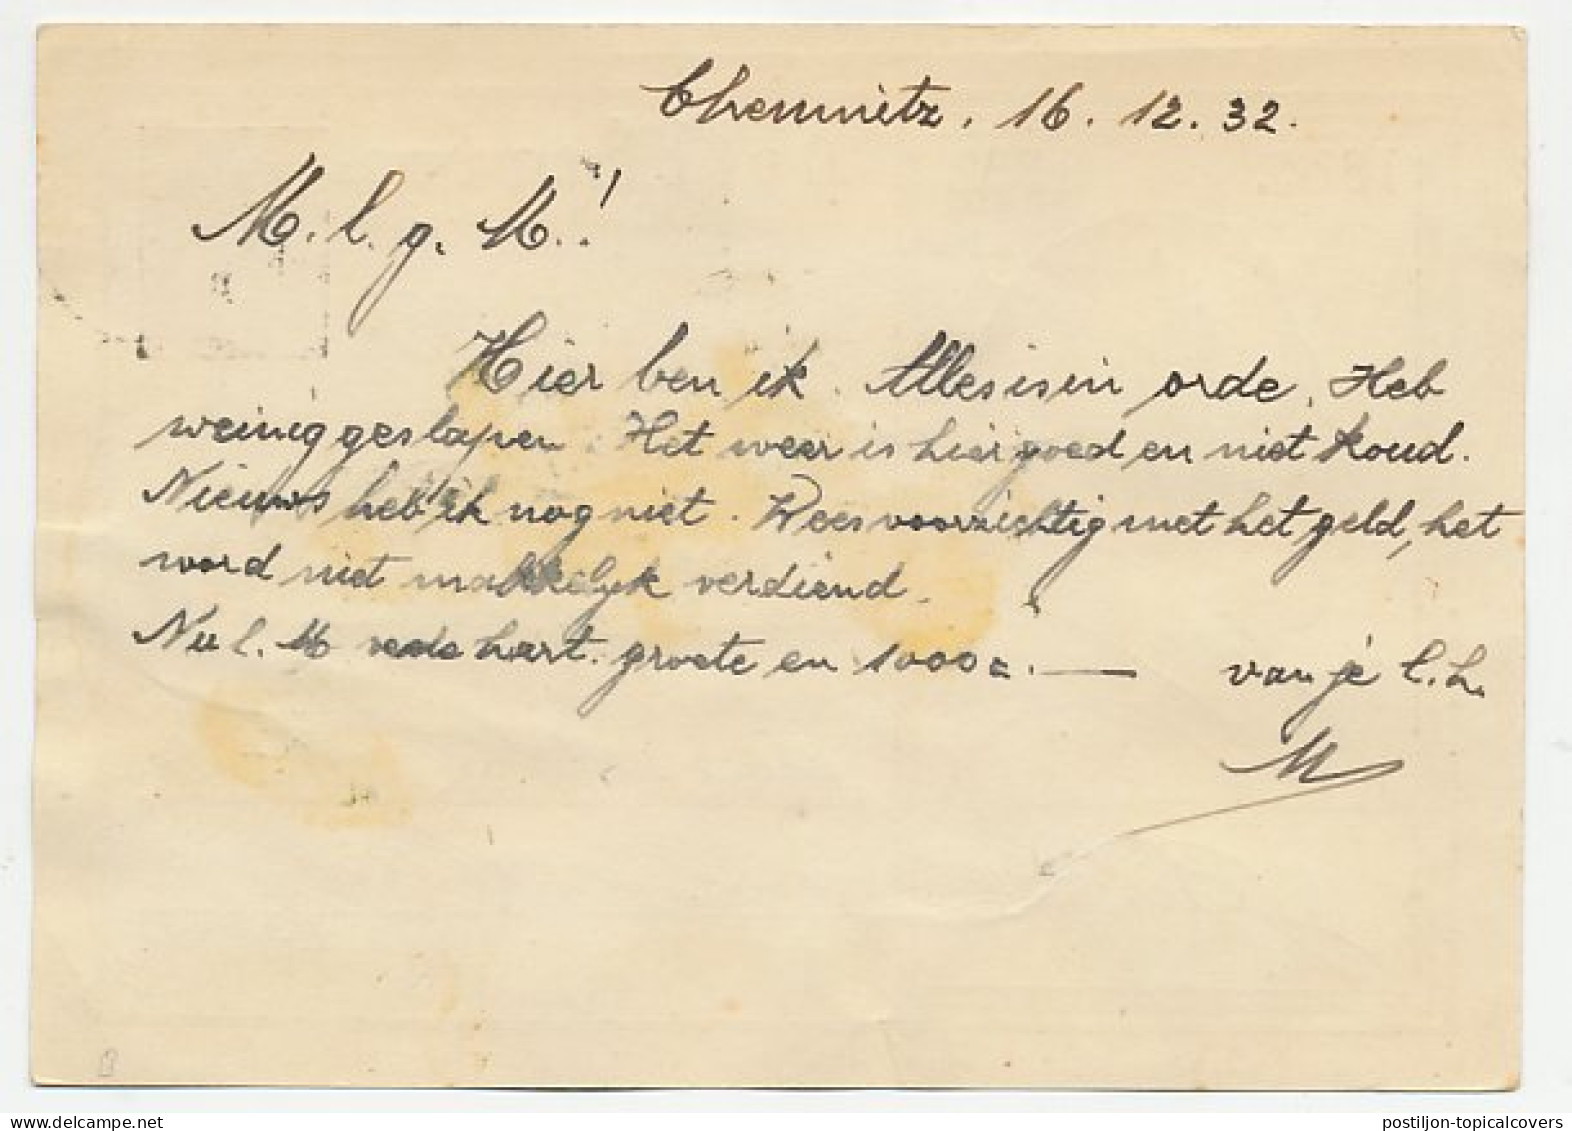 Chemnitz. 16. 12. 32.
M. l. g. M.!
Hier ben ik. Alles is in orde. Heb
weinig geslapen. Het weer is hier goed en niet koud.
Nieuws heb ik nog niet. Wees voorzichtig met het geld, het
word niet makkelyk verdiend.
Nu l. M hart. groete en 1000 — van je l. L.
M
postiljon-topicalcovers
www.delcampe.net